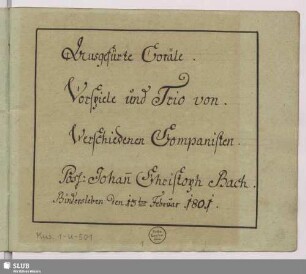 Ausgefürte Coräle.
Vorspiele und Trio von.
Verschiedenen Companisten.
Poss: Johan̄ Christoph Bach.
Bindersleben den 13ten Februar 1801.
Mus. 1-U-501
SLUB